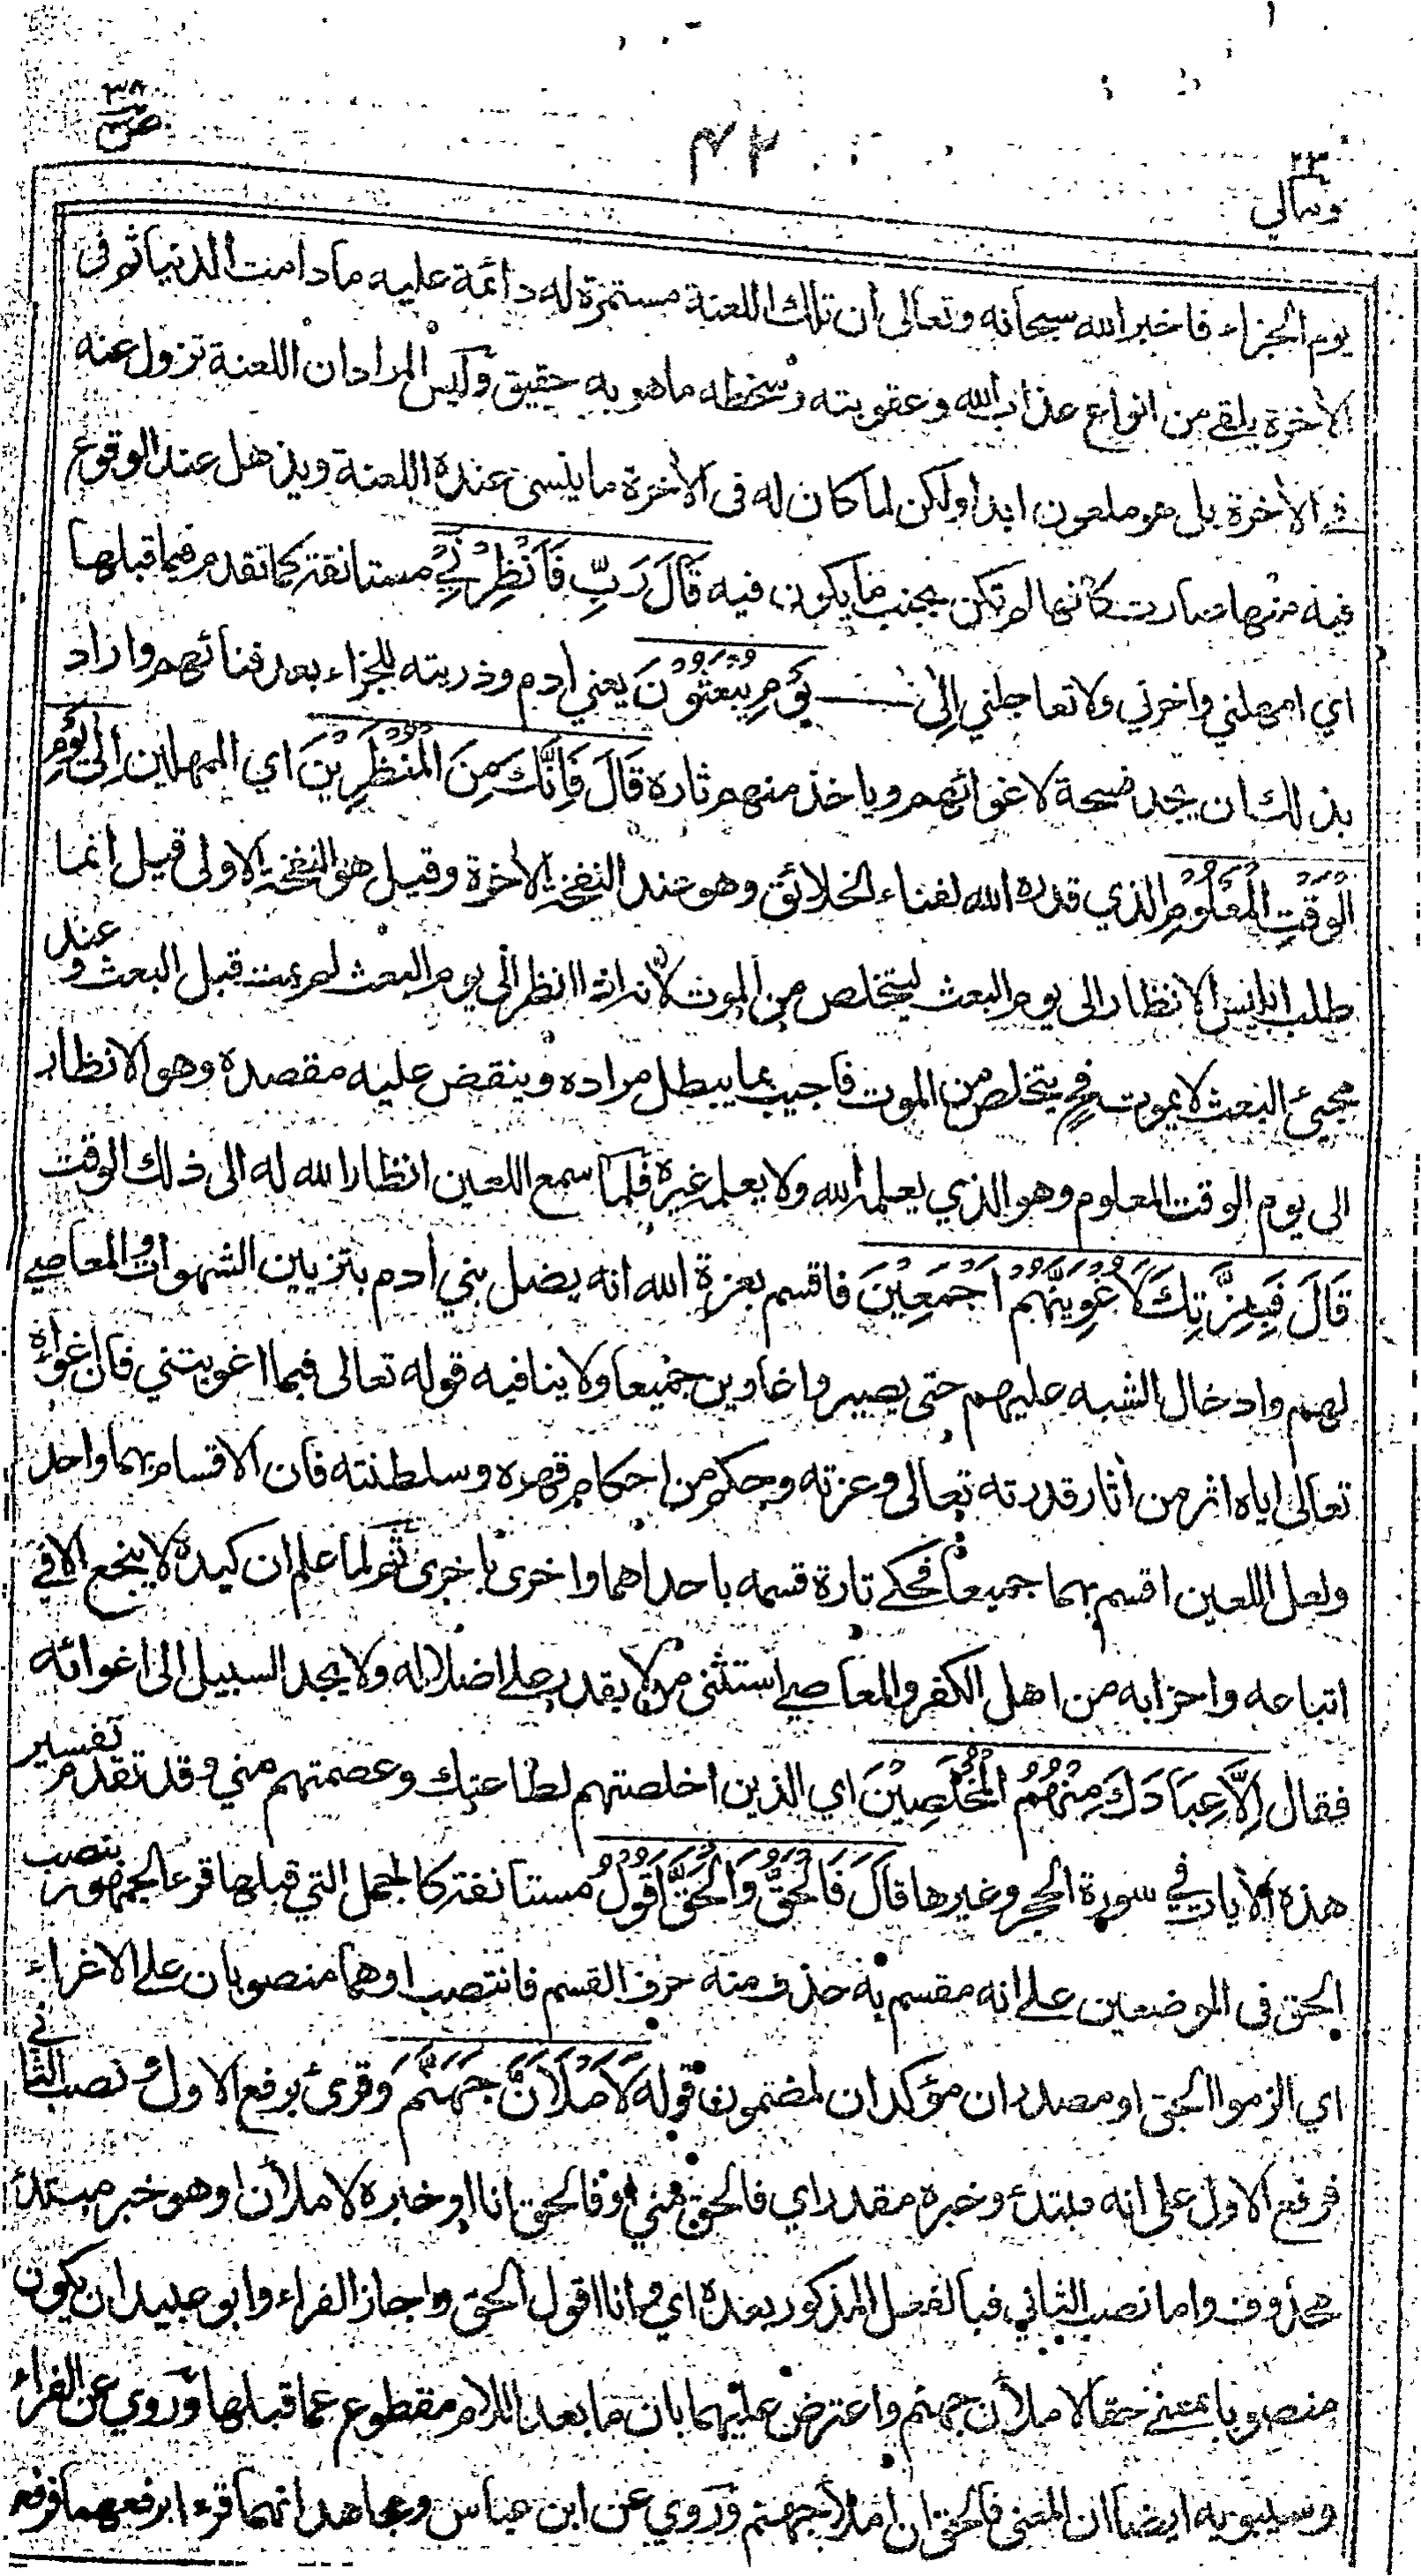 ص ٣٨
٤٢
٢٣ ومالي
يوم الجزاء فاخبر الله سبحانه وتعالى ان تلك اللعنة مستمرة له دائمة عليه مادامت الدنيا ثم فى
الأخرة يلقى من انواع عذاب الله وعقوبته وسخطه ما هو به حقيق وليس المراد ان اللعنة تزول عنه
فى الأخرة بل هو ملعون ابدا ولكن لما كان له فى الأخرة ما ينسى عنده اللعنة ويذهل عند الوقوع
فيه منها صارت كانها لم تكن بجنب ما يكون فيه قَالَ رَبِّ فَاَنْظِرْنِيْ مستانفة كما تقدم فيما قبلها
اي امهلني واخرني ولا تعاجلني اِلىٰ يَوْمِ يُبْعَثُوْنَ يعني أدم وذريته للجزاء بعد فنائهم واراد
بذلك ان يجد فسحة لاغوائهم وياخذ منهم ثاره قَالَ فَاِنَّكَ مِنَ الْمُنْظَرِيْنَ اي الممهلين اِلىٰ يَوْمِ
الْوَقْتِ الْمَعْلُوْمِ الذي قدره الله لفناء الخلائق وهو عند النفخة الأخرة وقيل هو النفخة الاولى قيل انما
طلب ابليس الانظار الى يوم البعث ليتخلص من الموت لانه اذا انظر الى يوم البعث لم يمت قبل البعث وعند
مجيئ البعث لا يموت فح يتخلص من الموت فاجيب بما يبطل مراده وينقض عليه مقصده وهو الانظار
الى يوم الوقت المعلوم وهو الذي يعلمه الله ولا يعلمه غيره فلما سمع اللعين انظار الله له الى ذلك الوقت
قَالَ فَبِعِزَّتِكَ لَاُغْوِيَنَّهُمْ اَجْمَعِيْنَ فاقسم بعزة الله انه يضل بني أدم بتزيين الشهوات والمعاصي
لهم وادخال الشبه عليهم حتى يصيروا غاوين جميعا ولا ينافيه قوله تعالى فبما اغويتني فان اغواءه
تعالى اياه اثر من أثار قدرته تعالى وعزته وحكم من احكام قهره وسلطنته فان الاقسام بهما واحد
ولعل اللعين اقسم بهما جميعا فحكى تارة قسمه باحداهما واخرى باخرى ثم لما علم ان كيده لا ينجع الا في
اتباعه واحزابه من اهل الكفر والمعاصي استثنى من لا يقدر على اضلاله ولا يجد السبيل الى اغوائه
فقال اِلَّا عِبَادَكَ مِنْهُمُ الْمُخْلَصِيْنَ اي الذين اخلصتهم لطاعتك وعصمتهم مني وقد تقدم تفسير
هذه الأيات في سورة الحجر وغيرها قَالَ فَالْحَقُّ وَالْحَقَّ اَقُوْلُ مستانفة كالجمل التي قبلها قرء الجمهور بنصب
الحق فى الموضعين على انه مقسم به حذف منه حرف القسم فانتصب او هما منصوبان على الاغراء
اي الزموا الحق او مصدران مؤكدان لمضمون قوله لَاَمْلَاَنَّ جَهَنَّمَ وقرئ برفع الاول ونصب الثاني
فرفع الاول على انه مبتدء وخبره مقدر اي فالحق مني او فالحق انا او خبره لاملأن او هو خبر مبتدئ
محذوف واما نصب الثاني فبالفعل المذكور بعده اي وانا اقول الحق واجاز الفراء وابو عبيد ان يكون
منصوبا بمعنى حقا لاملأن جهنم واعترض عليهما بان ما بعد اللام مقطوع عما قبلها وروي عن الفراء
وسيبويه ايضا ان المعنى فالحق ان املأ جهنم وروي عن ابن عباس ومجاهد انهما قرءا برفعهما فرفع